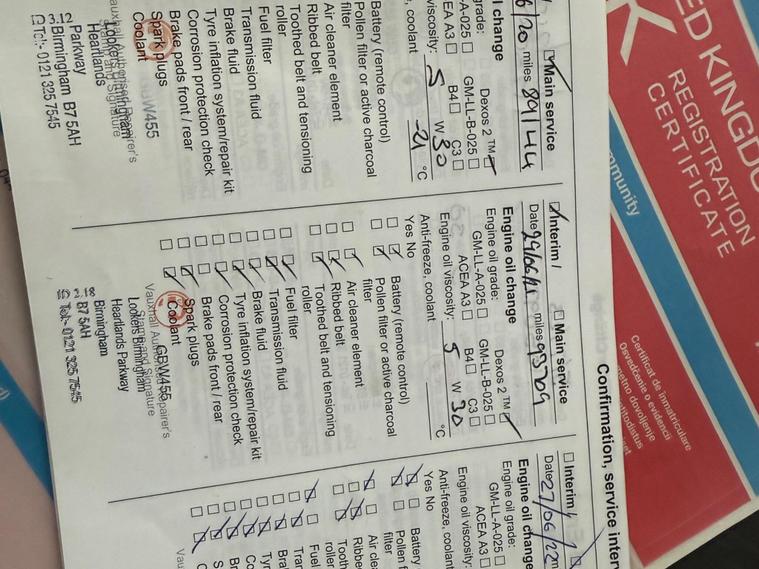 Confirmation, service inter
l change
Main service
6/20 miles 89144
grade:
Dexos 2 ™
A-025 GM-LL-B-025
EA A3 B4 C3
viscosity: 5 W 30
, coolant -21 °C
Battery (remote control)
Pollen filter or active charcoal
filter
Air cleaner element
Ribbed belt
Toothed belt and tensioning
roller
Fuel filter
Transmission fluid
Brake fluid
Tyre inflation system/repair kit
Corrosion protection check
Brake pads front / rear
Spark plugs
Coolant
Heartlands
Parkway
Birmingham B7 5AH
Tel:- 0121 325 7545
Interim / Main service
Date miles 93709
Engine oil change
Engine oil grade: Dexos 2 ™
GM-LL-A-025 GM-LL-B-025
ACEA A3 B4 C3
Engine oil viscosity: 5 W 30
Anti-freeze, coolant °C
Yes No
Battery (remote control)
Pollen filter or active charcoal
filter
Air cleaner element
Ribbed belt
Toothed belt and tensioning
roller
Fuel filter
Transmission fluid
Brake fluid
Tyre inflation system/repair kit
Corrosion protection check
Brake pads front / rear
Spark plugs
Coolant
GBW455
Vauxhall Authorised Repairer's
Name and Signature
Lookers Birmingham
Heartlands Parkway
Birmingham
B7 5AH
Tel:- 0121 325 7545
Interim /
Date 27/06/22
Engine oil change
Engine oil grade:
GM-LL-A-025
ACEA A3
Engine oil viscosity:
Anti-freeze, coolant
Yes No
Battery
Pollen f
filter
Air cle
Ribbed
Tooth
roller
Fuel
Tran
Bra
Ty
Co
Br
S
C
Vau
ED KINGDO
REGISTRATION
CERTIFICATE
mmunity
Certificat de înmatriculare
Osvedčenie o evidencii
metno dovoljenje